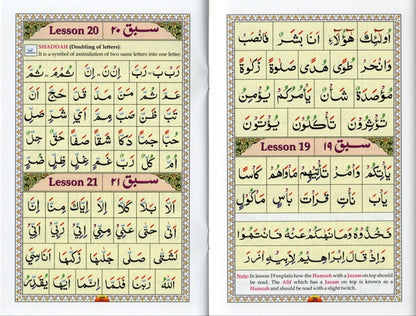 اُولٰٓئِكَ هٰٓؤُلَآءِ اَنَا بَشَرٌ فَانْصَبْ
وَانْحَرْ طُوًى هُدًى صَلٰوةً زَكٰوةً
مُؤْصَدَةٌ شَاْنٌ يَاْمُرُكُمْ يُؤْمِنُ
تُؤْثِرُوْنَ تَاْكُلُوْنَ يُؤْتَوْنَ
Lesson 19 سبق ١٩
يَاْتِكُمْ وَاْمُرْ تَاْتِيْهِمْ مَاْوٰهُمْ كَاْسًا
يَاْبَ نَاْتِ قَرَاْتَ بَاْسٍ مَاْكُوْلٍ
فَخُذُوْهُ وَمَا نَهٰكُمْ عَنْهُ فَانْتَهُوْا
وَاِذْ قَالَ اِبْرٰهِيْمُ لِاَبِيْهِ اٰزَرَ
Note: In lesson 19 explain how the Hamzah with a Jazam on top should
be read. The Alif which has a Jazam on top is known as a
Hamzah and should be read with a slight twitch.
Lesson 20 سبق ٢٠
SHADDAH (Doubling of letters):
It is a symbol of assimilation of two same letters into one letter.
رَبْ بَ - رَبَّ اِنْ نَ - اِنَّ ثُمْ مَ - ثُمَّ
عَمَّ ثُمَّ مَنَّ مَدَّ قَلَّ حَجَّ اَنَّ
تَبَّ ظَنَّ صَبَّ
حُبًّا جَمًّا دَكًّا شَقًّا صَفًّا حَقٌّ حِلٌّ
اُمٌّ كُلٌّ
Lesson 21 سبق ٢١
اَلَّا بَلَّا كَلَّا اِلَّا اِيَّاكَ مِنَّا اِنَّا
اِنِّيْ حَتّٰى عَنِّيْ مِنِّيْ
تَشَقّٰى صَلّٰى
اَللّٰهُ رَبَّنَا اِنَّمَا